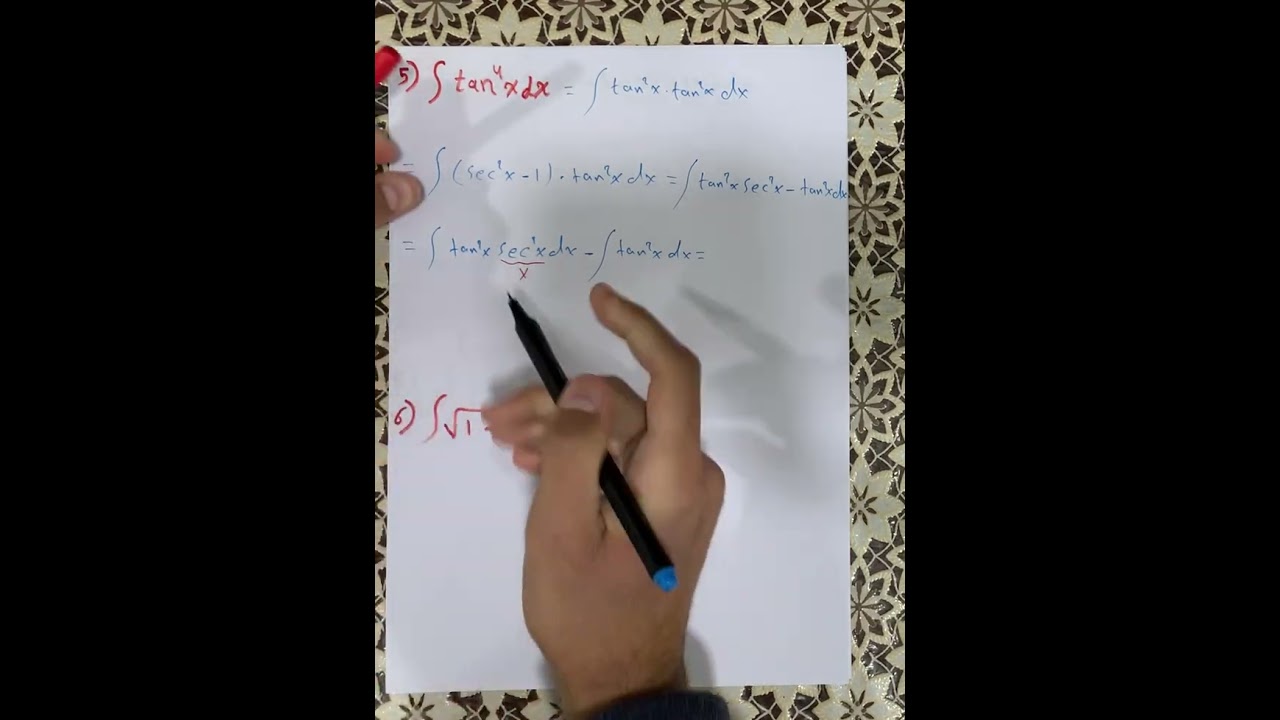 5) ∫ tan⁴x dx = ∫ tan²x · tan²x dx
= ∫ (sec²x − 1) · tan²x dx = ∫ tan²x sec²x − tan²x dx
= ∫ tan²x sec²x dx − ∫ tan²x dx =
x
6) ∫ √1